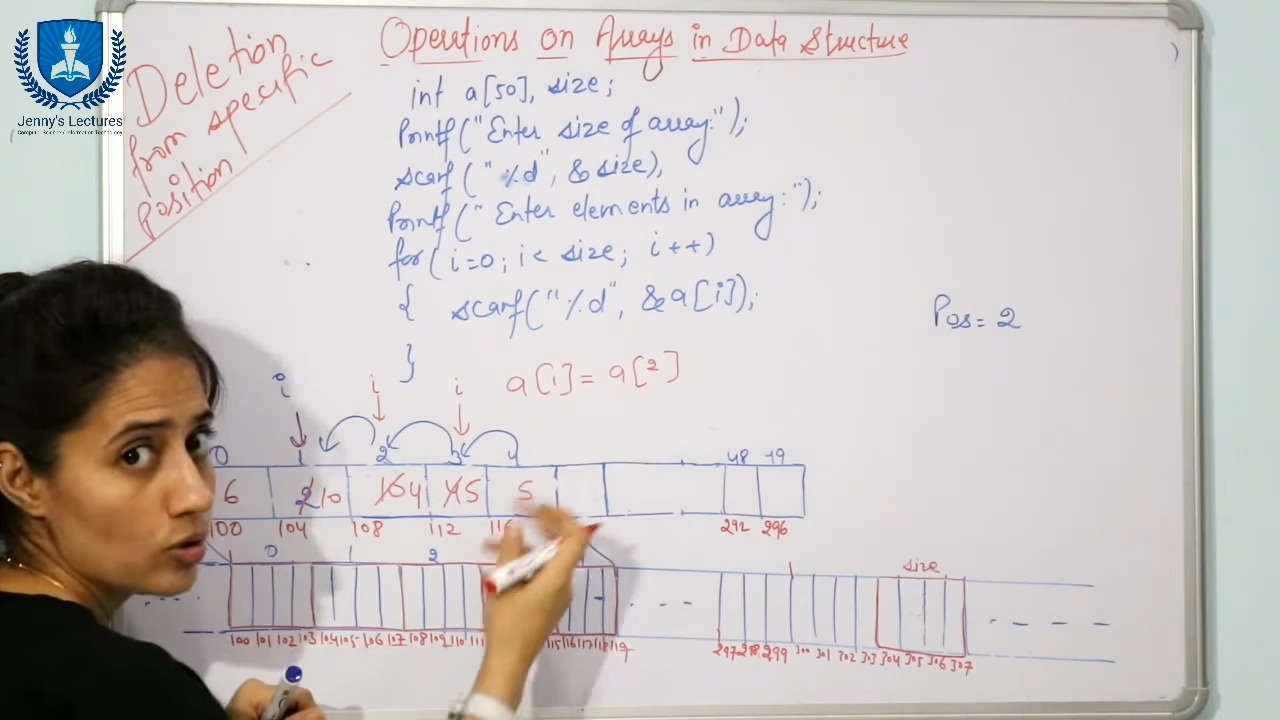 Jenny's Lectures
Computer Science/Information Technology
Deletion
from specific
position
Operations on Arrays in Data Structure
int a[50], size;
Printf("Enter size of array:");
scanf("%d", &size),
Printf("Enter elements in array:");
for(i=0; i< size; i++)
{ scanf("%d", &a[i]);
}
Pos= 2
a[i] = a[2]
i i i
0 1 2 3 4 48 49
6 2 10 10 4 4 5 5
100 104 108 112 116 292 296
0 1 2 size
100 101 102 103 104 105 106 107 108 109 110 115 116 117 118 119 297 298 299 300 301 302 303 304 305 306 307